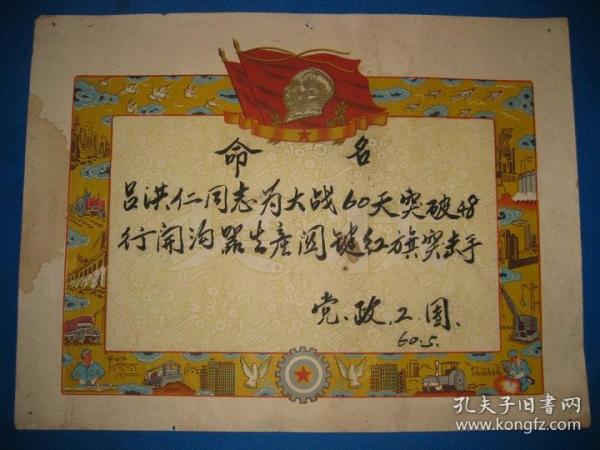 命 名
吕洪仁同志为大战60天突破48
行开沟器生产关键红旗突击手
党、政、工、团、
60.5.
孔夫子旧书网
www.kongfz.com